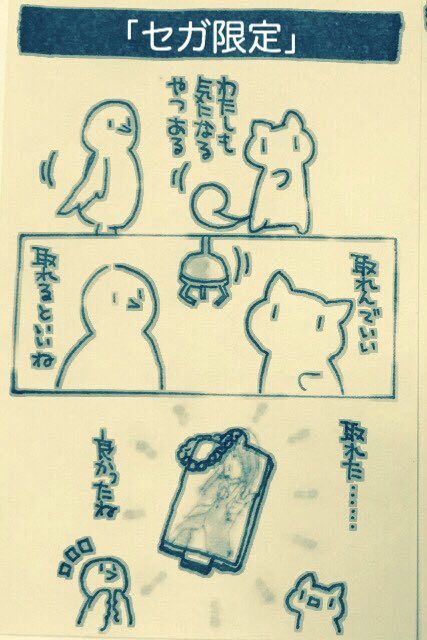 「セガ限定」
わたしも
気になる
やつある
取れんでいい
取れるといいね
取れた……
良かったね